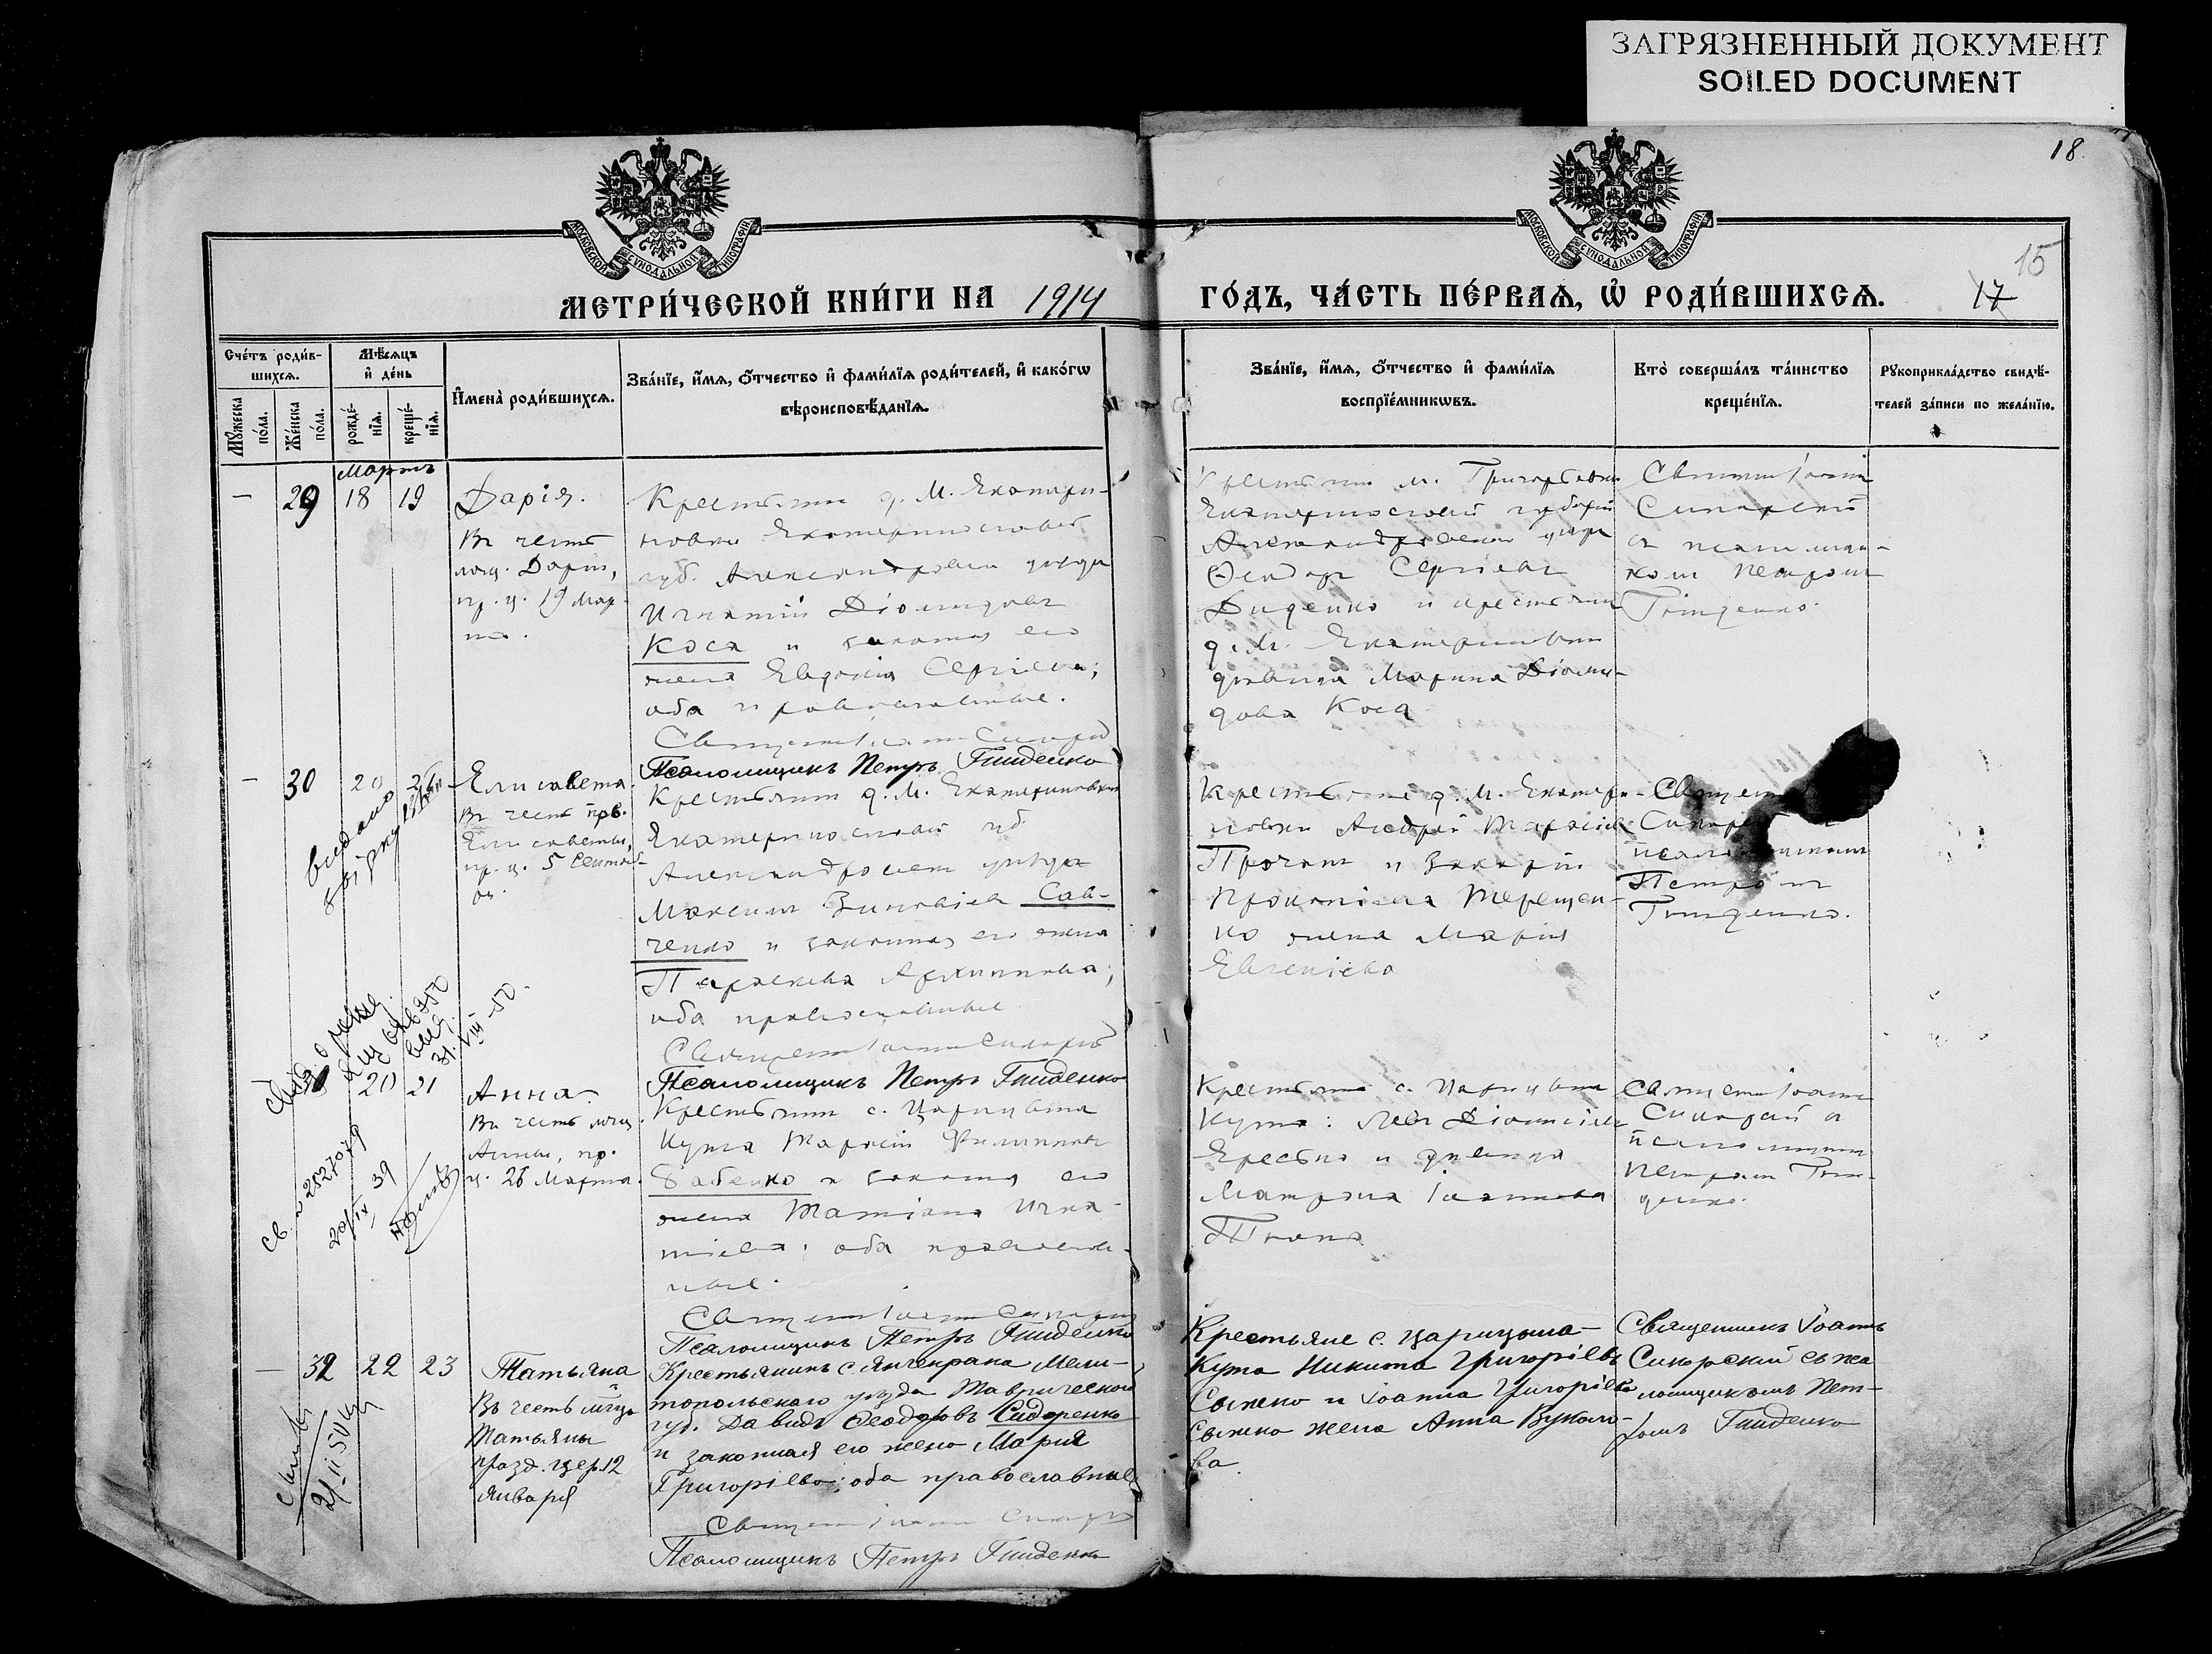 ЗАГРЯЗНЕННЫЙ ДОКУМЕНТ
SOILED DOCUMENT
18.
МОСКОВСКОЙ СѴНОДАЛЬНОЙ ТИПОГРАФІИ
МОСКОВСКОЙ СѴНОДАЛЬНОЙ ТИПОГРАФІИ
15
МЕТРИ́ЧЕСКОЙ КНИ́ГИ НА 1914
ГО́ДЪ, ЧА́СТЬ ПЕ́РВАѦ, Ѡ҆ РОДИ́ВШИХСѦ. 17
Сче́тъ роди́в-
шихсѧ.
Мѣ́сѧцъ
и҆ де́нь
Мꙋ́жеска
по́ла.
Же́нска
по́ла.
рожде́-
нїѧ.
креще́-
нїѧ.
И҆мена̀ роди́вшихсѧ.
Зва́нїе, и҆́мѧ, ѻ҆́тчество и҆ фами́лїѧ роди́телей, и҆ како́гѡ
вѣроисповѣ́данїѧ.
Зва́нїе, и҆́мѧ, ѻ҆́тчество и҆ фами́лїѧ
воспрїе́мникѡвъ.
Кто̀ соверша́лъ та́инство
креще́нїѧ.
Рꙋкоприкла́дство свидѣ́-
телей за́писи по жела́нїю.
Мартъ
— 29 18 19
Дарія.
Въ честь
мчц. Дарiи,
пр. ц. 19 Мар-
та.
Крестьянин д. М. Екатери-
новки Екатеринославской
губ. Александровскаго уезда
Игнатій Діомидовъ
Коса и законная его
жена Евдокія Сергіева;
оба православные.
Священник Іоанн Сикорский
Псаломщикъ Петръ Гниденко
Крестьянин м. Григорьевки
Екатеринославской губерніи
Александровскаго уезда
Ѳеодоръ Сергіевъ
Диденко и крестьянка
д. М. Екатериновки
девица Марина Діоми-
дова Коса
Священник Іоанн
Сикорский
съ псаломщи-
ком Петром
Гниденко.
— 30 20
видано
Елисавета.
Въ честь прв.
Елисаветы,
пр. ц. 5 Сентяб-
ря.
Крестьянин д. М. Екатериновки
Екатеринославской губ.
Александровскаго уезда
Максим Зиновіев Сав-
ченко и законная его жена
Параскева Архиппова;
оба православные
Священник Іоанн Сикорский
Псаломщикъ Петръ Гниденко
Крестьяне д. М. Екатери-
новки Андрей Тарасиев
Прочан и Захарія
Прокопіева Терещен-
ко жена Марія
Евгеніева
Священ
Сикорс
псаломщиком
Петром
Гниденко.
31.VIII-50.
31 20 21
Анна.
Въ честь мчц.
Анны, пр.
ц. 26 Марта.
Св. 39
Крестьянин с. Царицына
Кута Тарасій Филиппов
Бабенко и законная его
жена Татіана Игна-
тіева; оба православ-
ные.
Священник Іоанн Сикорский
Псаломщикъ Петръ Гниденко
Крестьяне с. Царицына
Кута: Лев Діонисіев
Ересько и девица
Матрона Іоаннова
Священник Іоанн
Сикорский с
псаломщиком
Петром Гни-
денко.
— 32 22 23
21-II 50
Татьяна
Въ честь мчцы
Татьяны
празд. цер. 12
Января
Крестьянинъ с. Янчекрака Мели-
топольскаго уезда Таврической
губ. Давидъ Ѳеодоровъ Сидоренко
и законная его жена Марія
Григоріева; оба православные
Священник Іоанн Сикорский
Псаломщикъ Петръ Гниденко
Крестьяне с. Царицына-
Кута Никита Григоріевъ
Сытко и Іоанна Григоріева
Сытко жена Анна Вуколо-
ва.
Священникъ Іоаннъ
Сикорский съ пса-
ломщикомъ Пет-
ромъ Гниденко